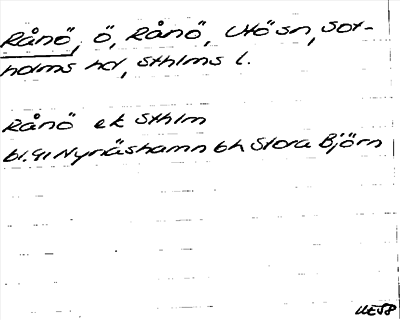 Rånö, ö, Rånö, Utö sn, Sot-
holms hd, Sthlms l.
Rånö ek Sthlm
bl. 91 Nynäshamn bh Stora Björn
UE58